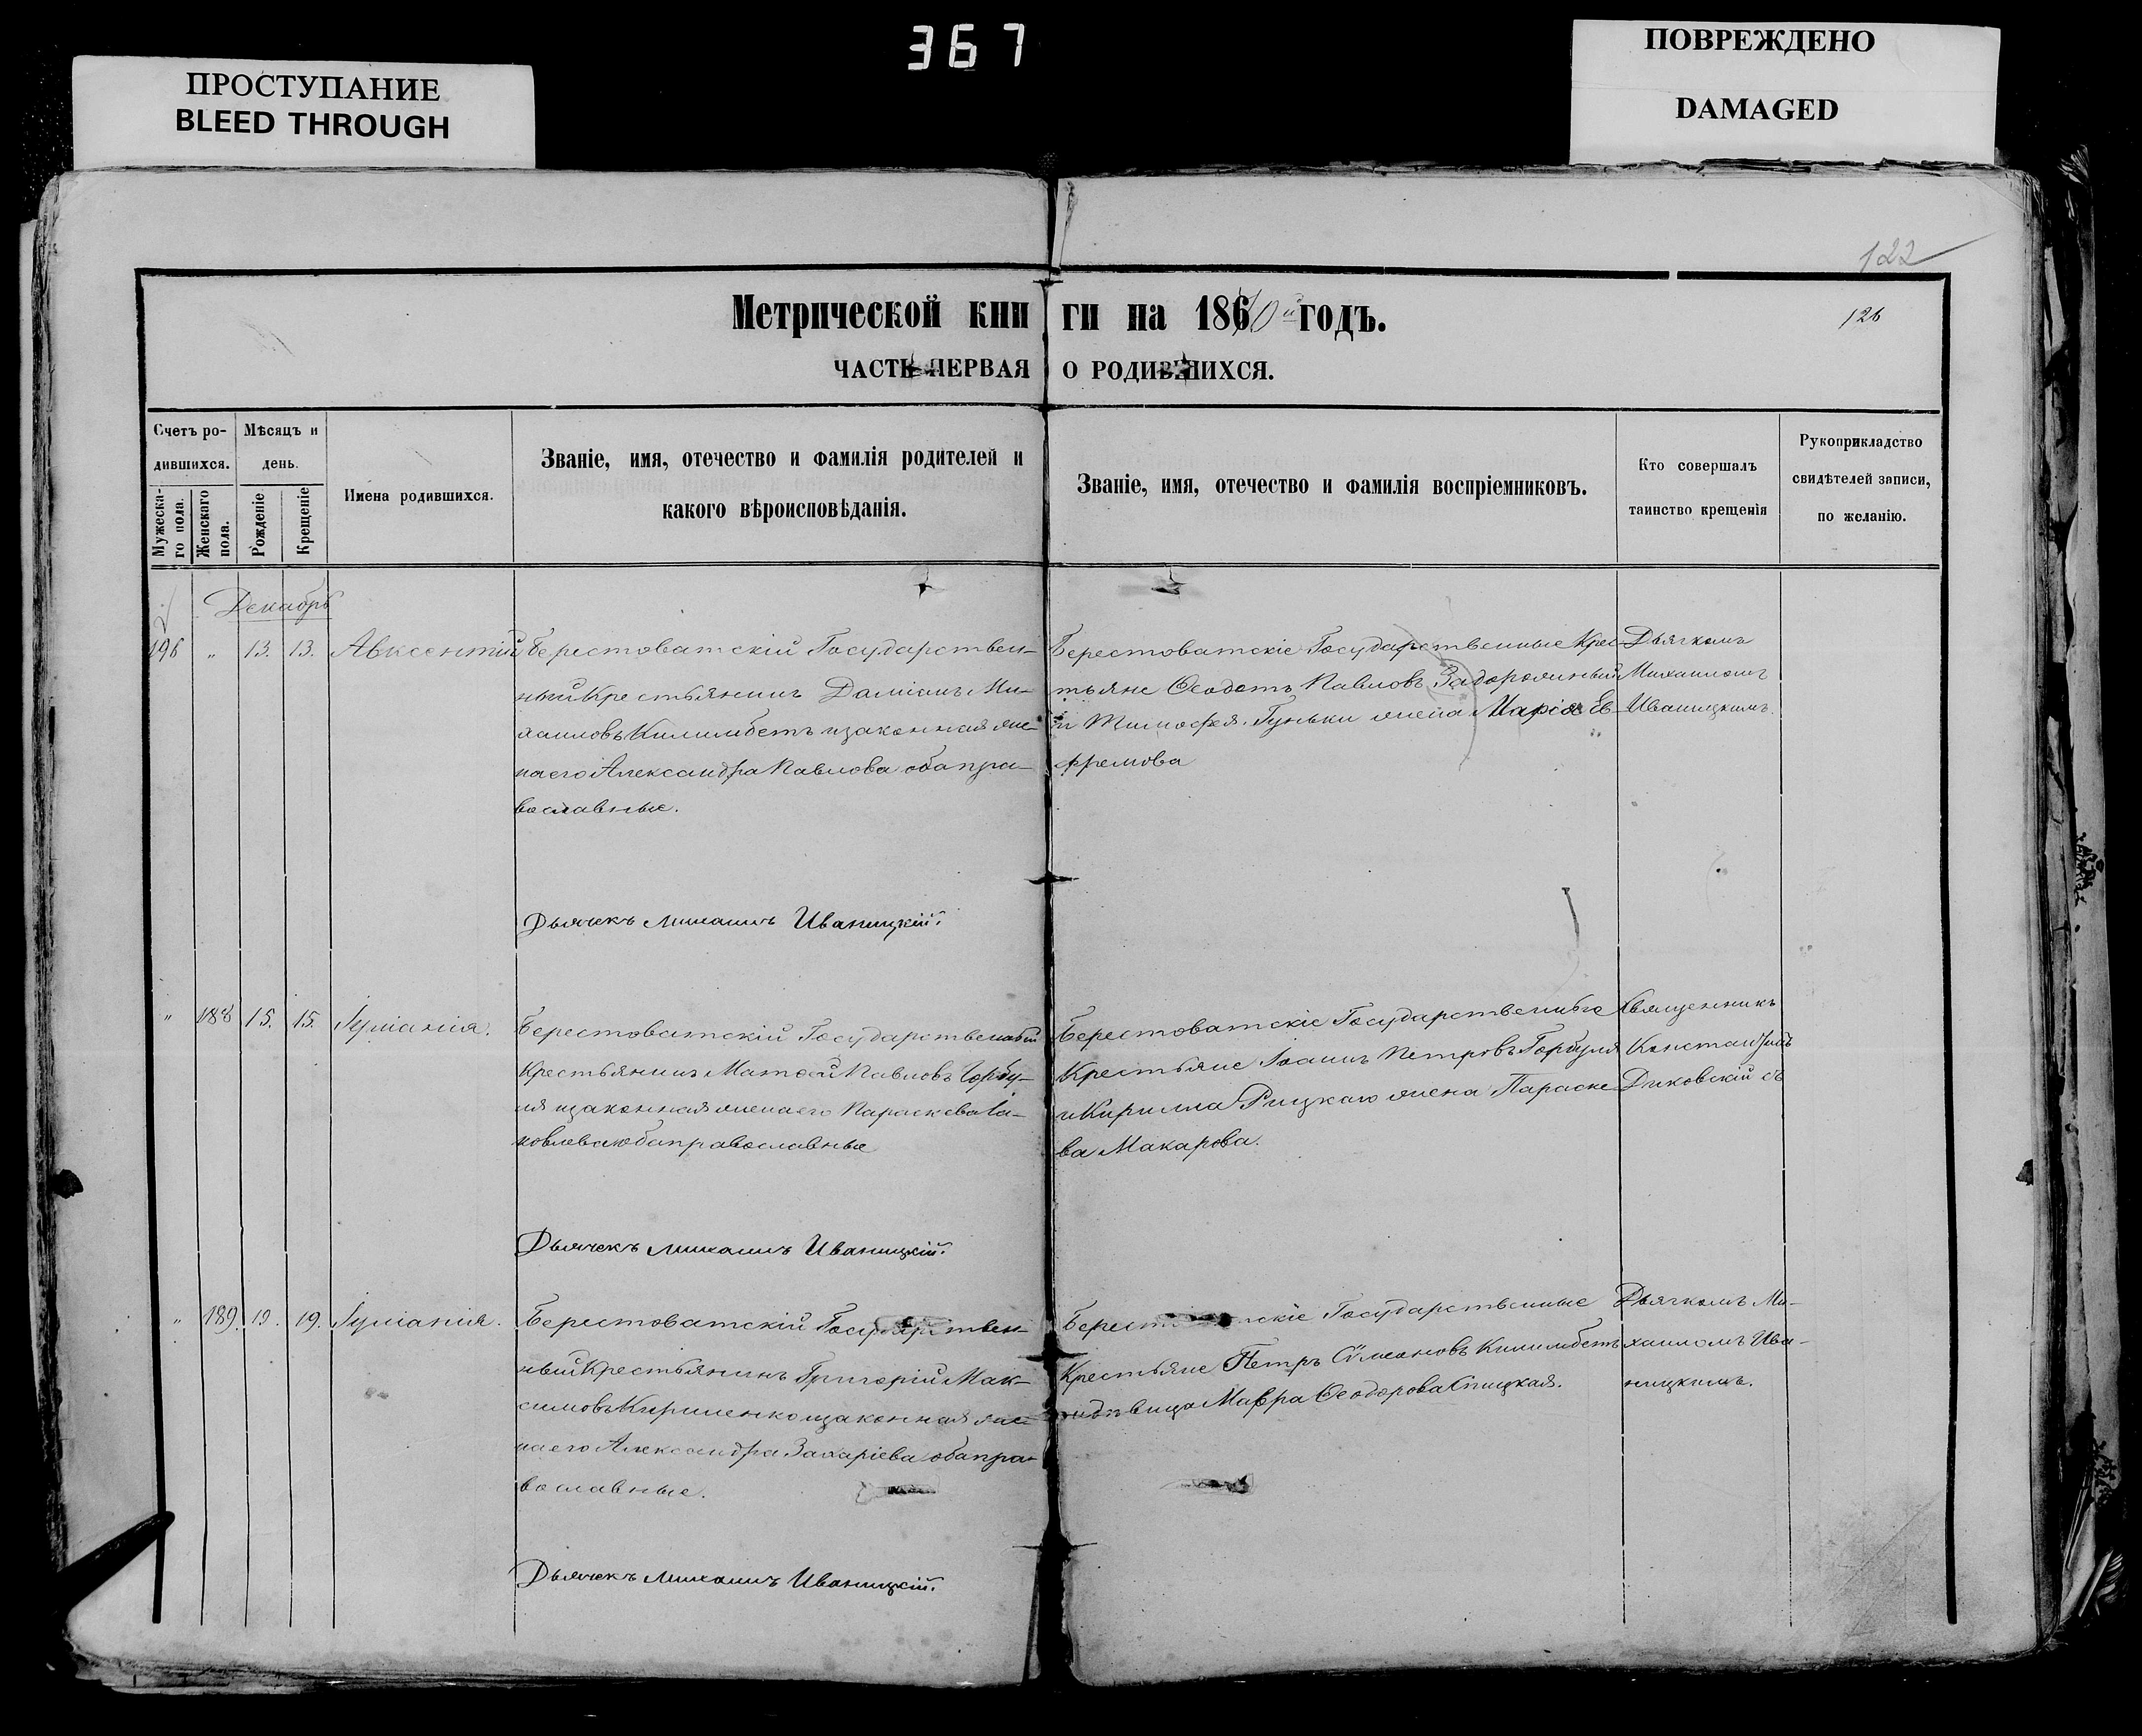 367
ПРОСТУПАНИЕ
BLEED THROUGH
ПОВРЕЖДЕНО
DAMAGED
122
126
Метрической книги на 1870й годъ.
ЧАСТЬ ПЕРВАЯ О РОДИВШИХСЯ.
Счетъ родившихся.
Мужескаго пола.
Женскаго пола.
Мѣсяцъ и день.
Рожденіе
Крещеніе
Имена родившихся.
Званіе, имя, отечество и фамилія родителей и
какого вѣроисповѣданія.
Званіе, имя, отечество и фамилія воспріемниковъ.
Кто совершалъ
таинство крещенія
Рукоприкладство
свидѣтелей записи,
по желанію.
Декабрь
196 " 13. 13. Авксентій
Берестоватскій Государствен-
ный Крестьянинъ Даміанъ Ми-
хаиловъ Килимбетъ и законная же-
на его Александра Павлова оба пра-
вославные.
Берестоватскіе Государственные Крес-
тьяне Ѳеодотъ Павловъ Задорожный
и Тимофея Гуньки жена Марія Ев-
фремова
Дьячкомъ
Михаиломъ
Иваницкимъ.
Дьячекъ Михаилъ Иваницкій.
" 188 15. 15. Іуліанія.
Берестоватскій Государственный
Крестьянинъ Матѳей Павловъ Горбу-
ля и законная жена его Параскева Іа-
ковлева оба православные
Берестоватскіе Государственные
Крестьяне Іоаннъ Петровъ Горбуля
и Кирилла Рицкаго жена Параске-
ва Макарова.
Священникъ
Константинъ
Диковскій съ
Дьячекъ Михаилъ Иваницкій.
" 189. 19. 19. Іуліанія.
Берестоватскій Государствен-
ный Крестьянинъ Григорій Мак-
симовъ Кириленко и законная же-
на его Александра Захаріева оба пра-
вославные.
Государственные
Крестьяне Петръ Симеоновъ Килимбетъ
Мавра Ѳеодорова Спицкая.
Дьячкомъ Ми-
хаиломъ Ива-
ницкимъ.
Дьячекъ Михаилъ Иваницкій.